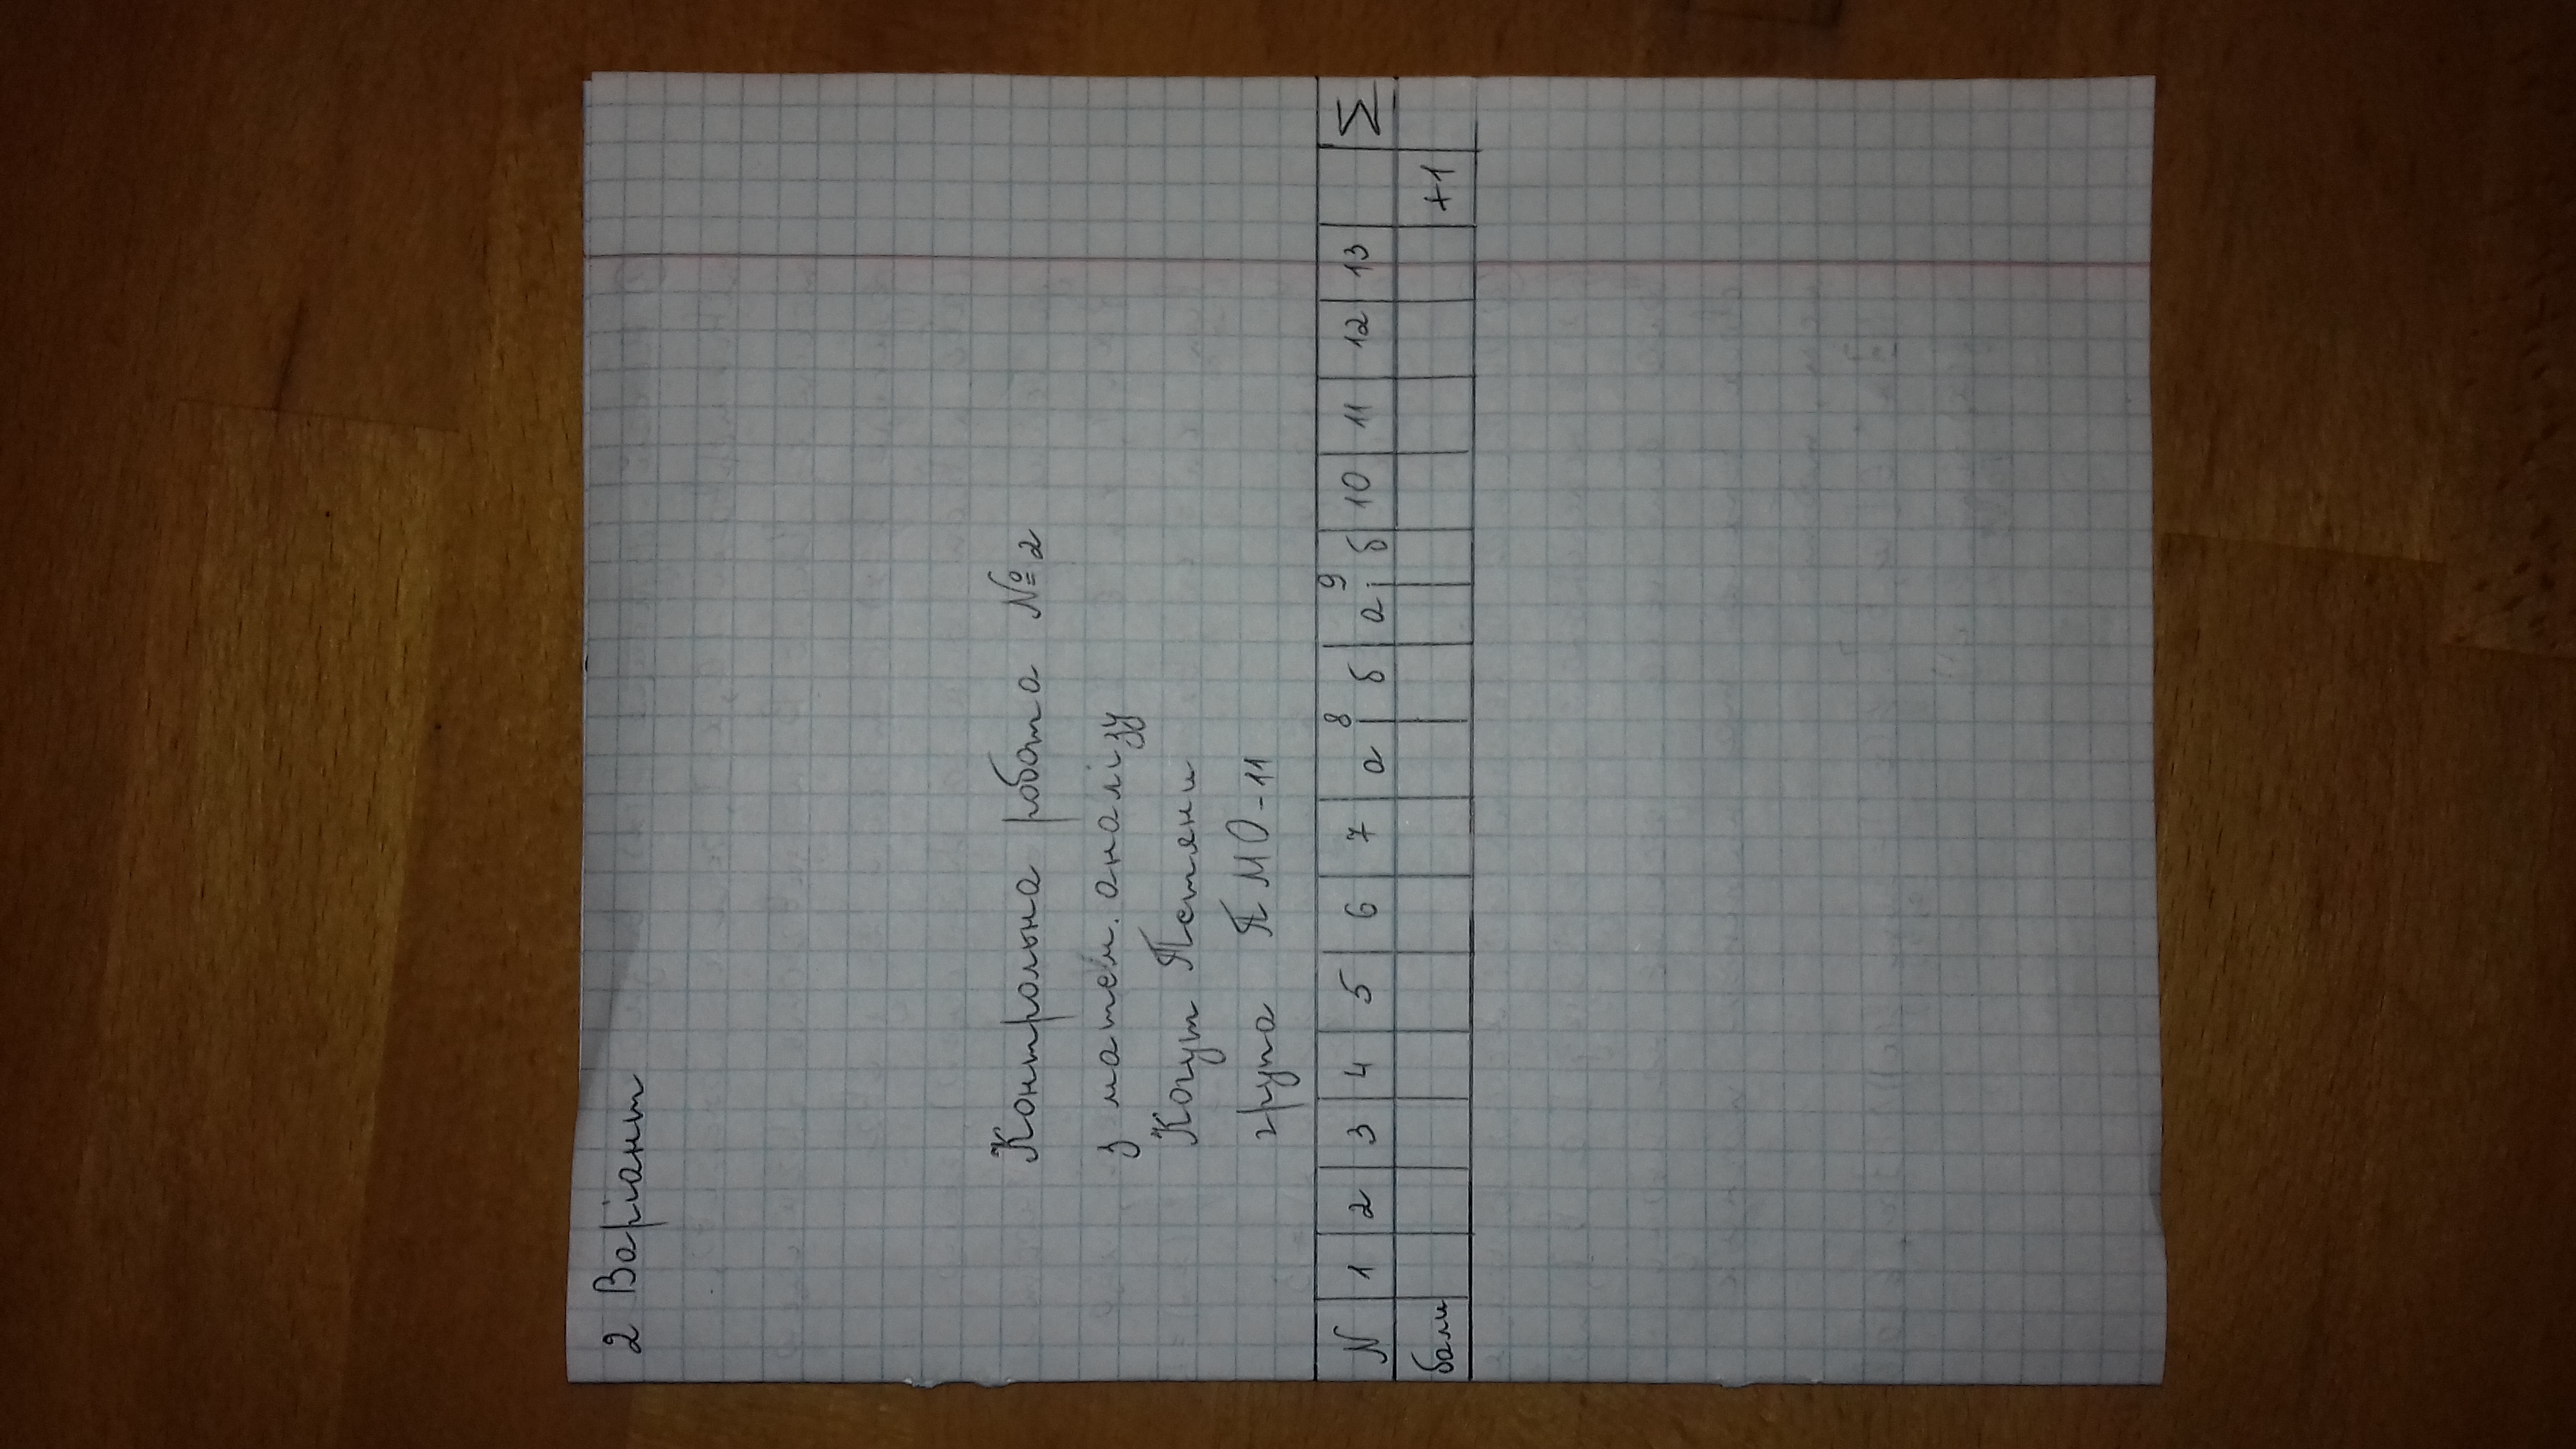 2 Варіант
Контрольна робота №2
з матем. аналізу
Когут Тетяни
група ПМО-11
N 1 2 3 4 5 6 7 8 а б 9 а б 10 11 12 13 Σ
бали +1